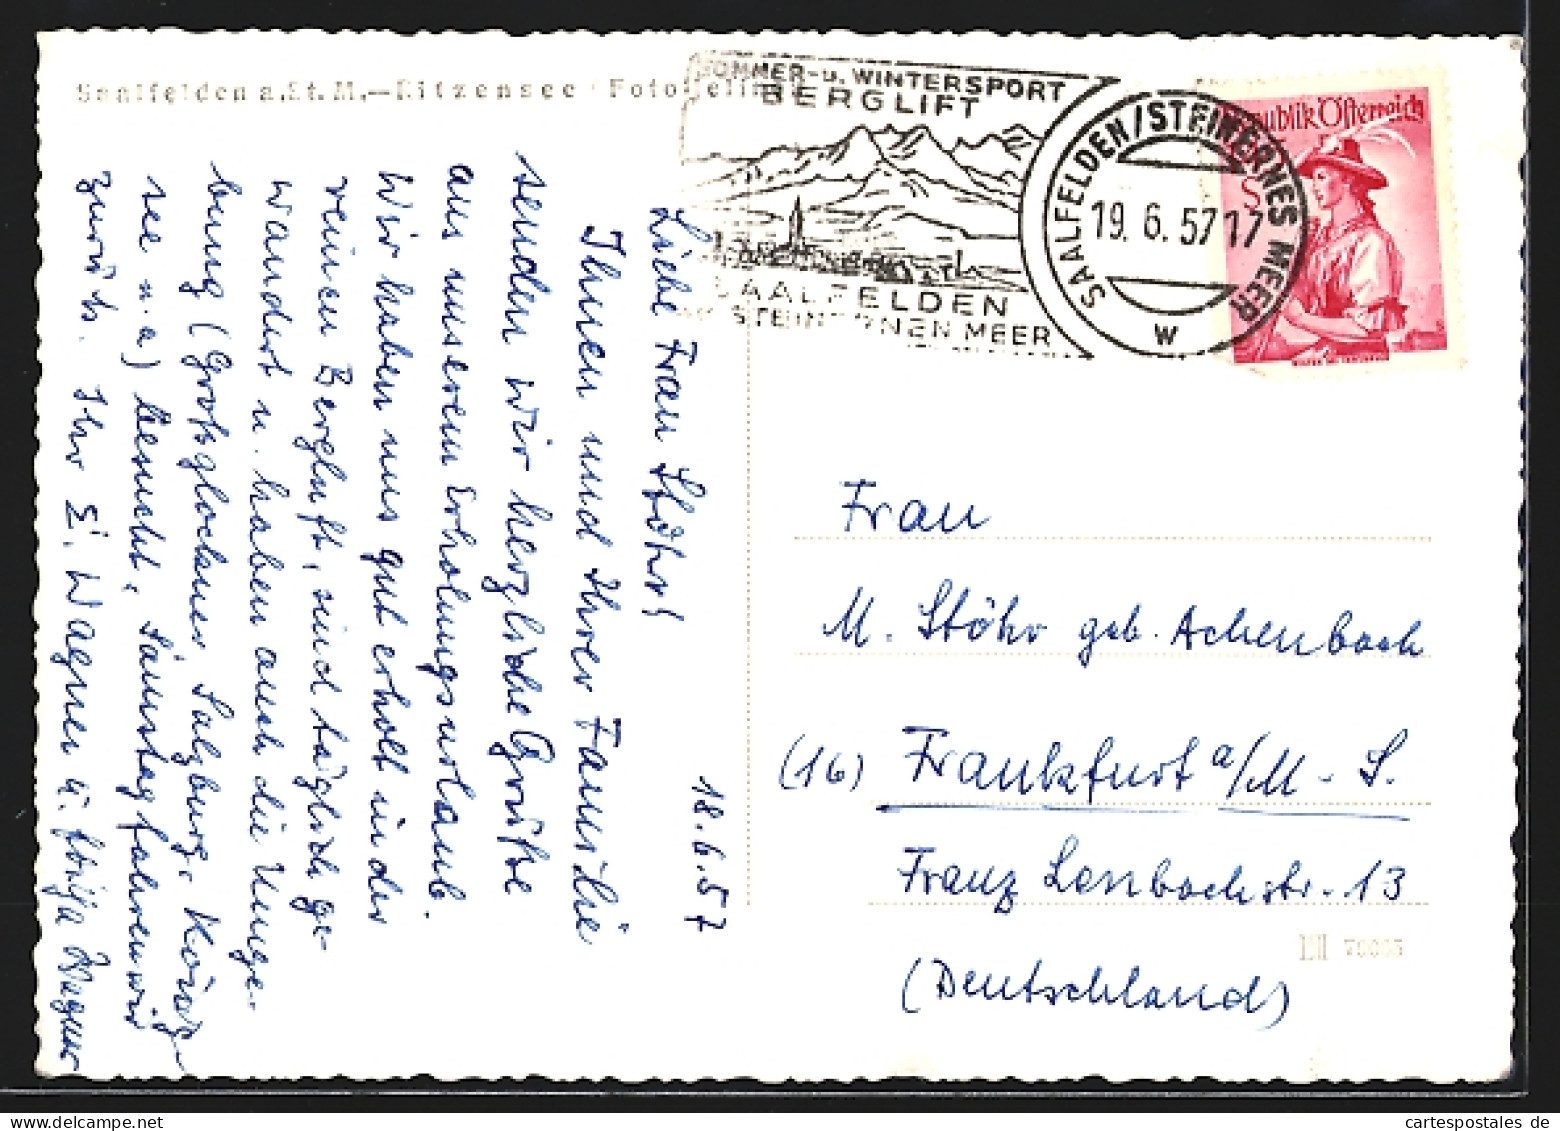 Saalfelden a.St.M.—Ritzensee Foto
SOMMER-u. WINTERSPORT
BERGLIFT
SAALFELDEN
STEINERNEN MEER
SAALFELDEN/STEINERNES MEER
19. 6. 57 17
W
Republik Österreich
S
18.6.57
Liebe Frau Stöhr!
Ihnen und Ihrer Familie
senden wir herzliche Grüße
aus unserem Erholungsurlaub.
Wir haben uns gut erholt in der
reinen Bergluft, sind täglich ge-
wandert u. haben auch die Umge-
bung (Großglockner, Salzburg, König-
see u. a) besucht. Samstag fahren wir
zurück. Ihr E. Wagner u. Wagner
Frau
M. Stöhr geb. Achenbach
(16) Frankfurt a/M - S.
Franz Lenbachstr. 13
(Deutschland)
cartespostales de